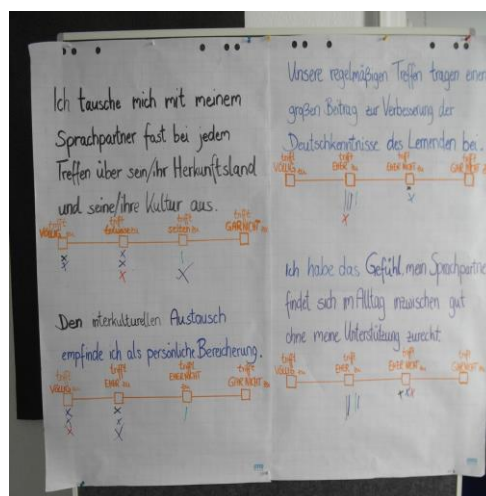 Ich tausche mich mit meinem
Sprachpartner fast bei jedem
Treffen über sein/ihr Herkunftsland
und seine/ihre Kultur aus.
trifft trifft trifft trifft
VÖLLIG zu teilweise zu selten zu GAR NICHT zu
Den interkulturellen Austausch
empfinde ich als persönliche Bereicherung.
trifft trifft trifft trifft
VÖLLIG zu EHER zu EHER NICHT zu GAR NICHT zu
Unsere regelmäßigen Treffen tragen einen
großen Beitrag zur Verbesserung der
Deutschkenntnisse des Lernenden bei.
trifft trifft trifft trifft
VÖLLIG zu EHER zu EHER NICHT zu GAR NICHT zu
Ich habe das Gefühl, mein Sprachpartner
findet sich im Alltag inzwischen gut
ohne meine Unterstützung zurecht.
trifft trifft trifft trifft
VÖLLIG zu EHER zu EHER NICHT zu GAR NICHT zu